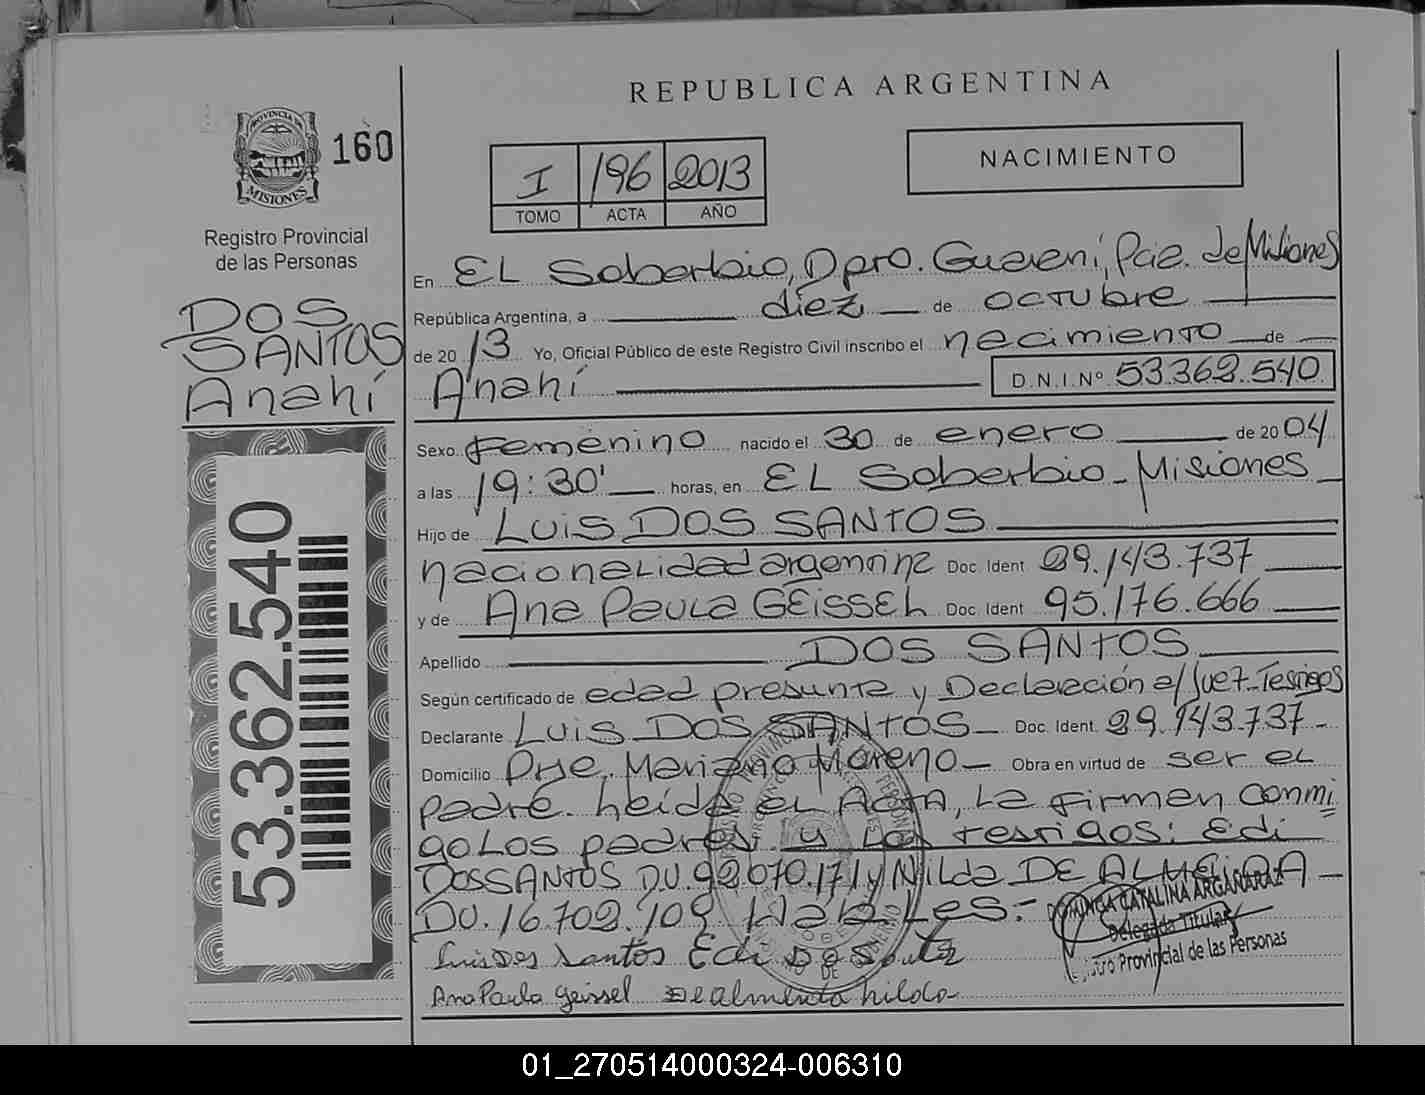 REPUBLICA ARGENTINA
PROVINCIA DE
MISIONES
160
Registro Provincial
de las Personas
DOS
SANTOS
Anahí
53.362.540
I 196 2013
TOMO ACTA AÑO
NACIMIENTO
En EL Soberbio, Dpto. Guaraní, Pcia. de Misiones
República Argentina, a diez de octubre
de 2013 Yo, Oficial Público de este Registro Civil inscribo el nacimiento de
Anahí D.N.I.Nº 53.362.540
Sexo Femenino nacido el 30 de enero de 2004
a las 19:30' horas, en EL Soberbio - Misiones
Hijo de LUIS DOS SANTOS
nacionalidad argentina Doc. Ident 29.143.737
y de Ana Paula GEISSEL Doc. Ident 95.176.666
Apellido DOS SANTOS
Según certificado de edad presunta y Declaración a/ Juez-Testigos
Declarante LUIS DOS SANTOS Doc. Ident. 29.143.737-
Domicilio Pje. Mariano Moreno Obra en virtud de ser el
padre. heída el Acta, La firman conmi
go Los padres y Los testigos: Edi
DOSSANTOS DU. 92.070.171 y Nilda DE ALMEIDA
DU. 16.702.109 Hábiles.-
Luis Dos Santos Edi Dos Santos
Ana Paula Geissel De almeida nilda
DOMINGA CATALINA ARGAÑARAZ
Delegada Titular
Registro Provincial de las Personas
01_270514000324-006310